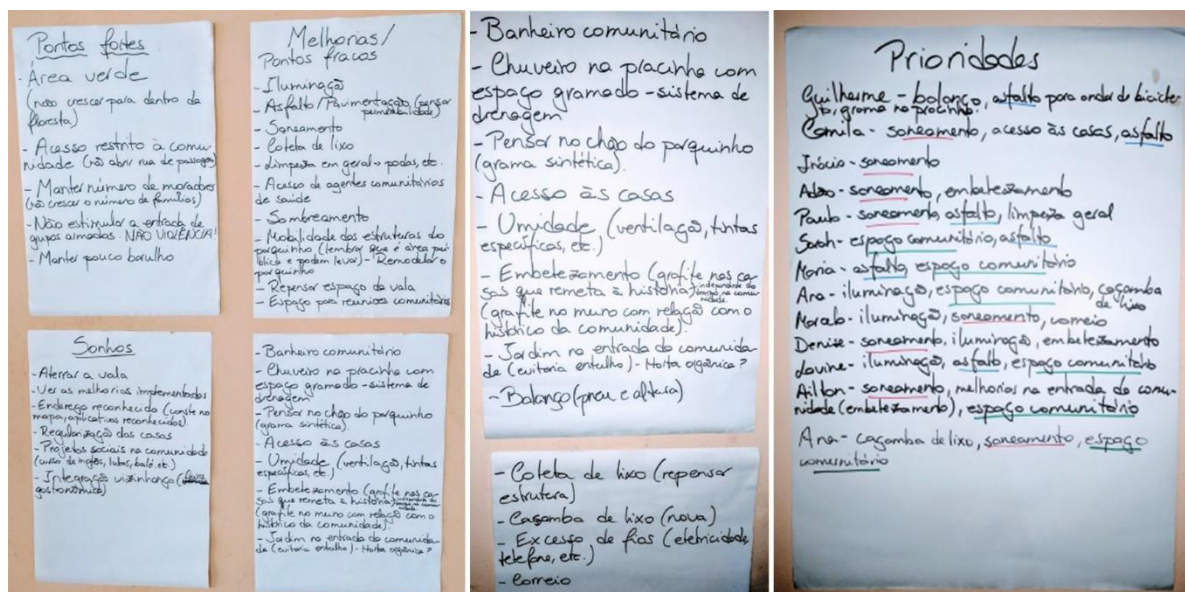 Pontos fortes
- Área verde
(não crescer para dentro da
floresta)
- Acesso restrito à comu-
nidade (não abrir rua de passagem)
- Manter número de moradores
(não crescer o número de famílias)
- Não estimular a entrada de
grupos armados. NÃO VIOLÊNCIA!
- Manter pouco barulho
Melhorias/
Pontos fracos
- Iluminação
- Asfalto/Pavimentação (pensar
permeabilidade)
- Saneamento
- Coleta de lixo
- Limpeza em geral → podas, etc.
- Acesso de agentes comunitários
de saúde
- Sombreamento
- Mobilidade das estruturas do
parquinho (lembrar que é área pú-
blica e podem levar) - Remodelar o
parquinho
- Repensar espaço da vala
- Espaço para reuniões comunitárias
Sonhos
- Aterrar a vala
- Ver as melhorias implementadas
- Endereço reconhecido (conste no
mapa, aplicativos reconhecidos).
- Regularização das casas
- Projetos sociais na comunidade
(curso de inglês, lutas, balé, etc.)
- Integração vizinhança (
gastronômica)
- Banheiro comunitário
- Chuveiro na pracinha com
espaço gramado - sistema de
drenagem
- Pensar no chão do parquinho
(grama sintética)
- Acesso às casas
- Umidade (ventilação, tintas
específicas, etc.)
- Embelezamento (grafite nas ca-
sas que remeta à história) independente da
(grafite no muro com relação com o
histórico da comunidade).
- Jardim na entrada da comunida-
de (evitaria entulho) - Horta orgânica?
- Banheiro comunitário
- Chuveiro na pracinha com
espaço gramado - sistema de
drenagem
- Pensar no chão do parquinho
(grama sintética).
- Acesso às casas
- Umidade (ventilação, tintas
específicas, etc.)
- Embelezamento (grafite nas ca-
sas que remeta à história) independente da
(grafite no muro com relação com o
histórico da comunidade).
- Jardim na entrada da comunida-
de (evitaria entulho) - Horta orgânica?
- Balanço (pneu e altura)
- Coleta de lixo (repensar
estrutura)
- Caçamba de lixo (nova)
- Excesso de fios (eletricidade,
telefone, etc.)
- Correio
Prioridades
Guilherme - balanço, asfalto para andar de bicicle-
ta, grama na pracinha.
Camila - saneamento, acesso às casas, asfalto
Inácio - saneamento
Adão - saneamento, embelezamento
Paulo - saneamento, asfalto, limpeza geral
Sarah - espaço comunitário, asfalto
Maria - asfalto, espaço comunitário
Ana - iluminação, espaço comunitário, caçamba
de lixo
- iluminação, saneamento, correio
Denise - saneamento, iluminação, embelezamento
- iluminação, asfalto, espaço comunitário
Ailton - saneamento, melhorias na entrada da comu-
nidade (embelezamento), espaço comunitário
Ana - caçamba de lixo, saneamento, espaço
comunitário